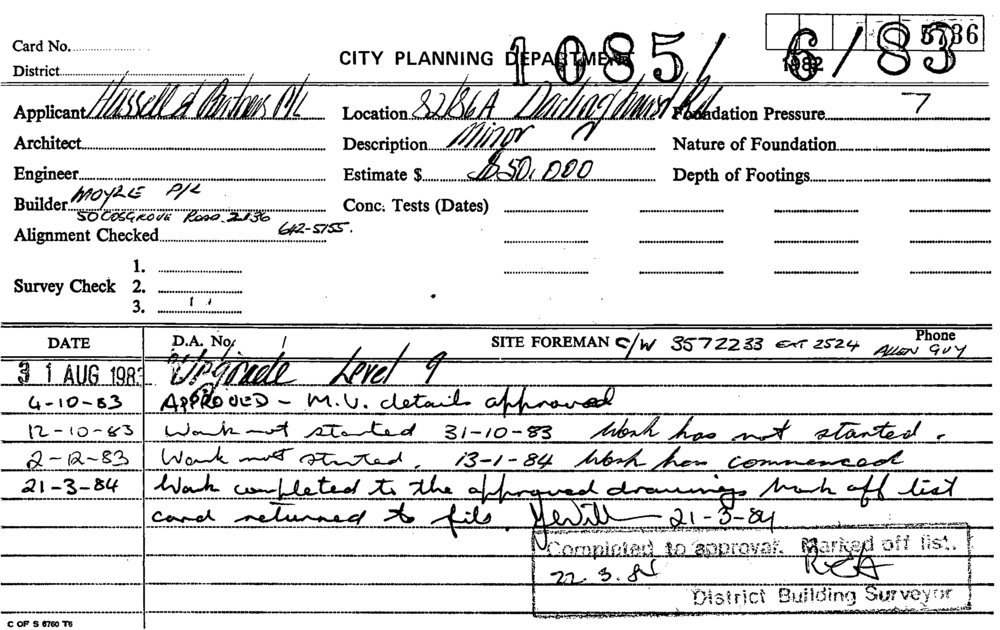 Card No.
5736
CITY PLANNING DEPARTMENT 1085/ 6/83
1982
District
Applicant Hassell & Partners P/L Location 82/86A Darlinghurst Rd Foundation Pressure 7
Architect Description Minor Nature of Foundation
Engineer Estimate $ $50,000 Depth of Footings
Builder MOYLE P/L Conc. Tests (Dates)
50 COSGROVE ROAD 2136
Alignment Checked 642-5755.
1.
Survey Check 2.
3.
DATE D.A. No. / SITE FOREMAN C/W 3572233 EXT 2524 Phone
ALLEN GUY
31 AUG 1983 Upgrade Level 9
4-10-83 APPROVED - M.V. details approved
12-10-83 Work not started 31-10-83 Work has not started.
2-12-83 Work not started. 13-1-84 Work has commenced
21-3-84 Work completed to the approved drawings Mark off list
card returned to file. 21-3-84
Completed to approval. Marked off list.
22.3.84
District Building Surveyor
C OF S 6760 T6